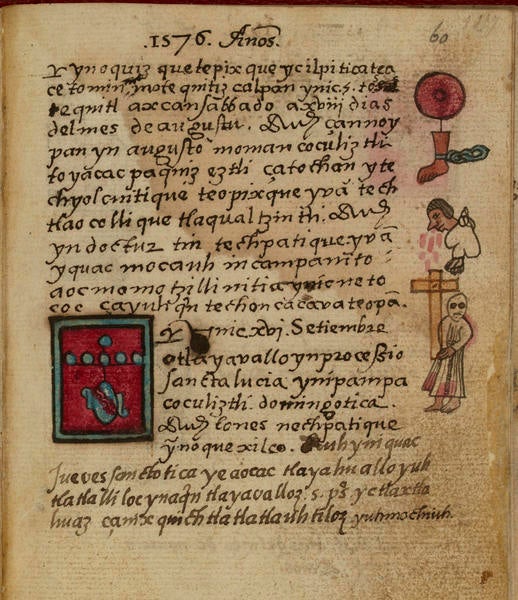 .1576. Años. 60
Y ynoquiz que tepix que yc ilpiticatca
ce tomin, mote quitiz calpan ynic. 5. tos
te quitl axcan sabbado a xviii dias
del mes de augustu. Auh çan no y
pan yn augusto moman cocoliztli
to yacac pa quiz eztli ça tochan y te
chyolcuiti que teopixque yvã tech
tlao colli que tlaqualtzintli. Auh
yn doctur tin techpatique. yvã
yquac mo cauh in campanito
aoc mo mo tzillini tia ynic neto
coc ça yuliqui techon cacava teopã.
Y ynic. xvi. Setiembre
otlayavallo yn processio
sancta lucia yn ipampa
cocoliztli. domingotica.
Auh lones nechpatique
yn oque xilco. Auh yn iquac
Jueves sanctotica ye aocac tlayahuallo yuh
tlatlalli loc yn aquin tlayavalloz. s. pº yc tlaxtla
huaz çan ix quich tlatlatlauhtiloz yuh mochiuh.